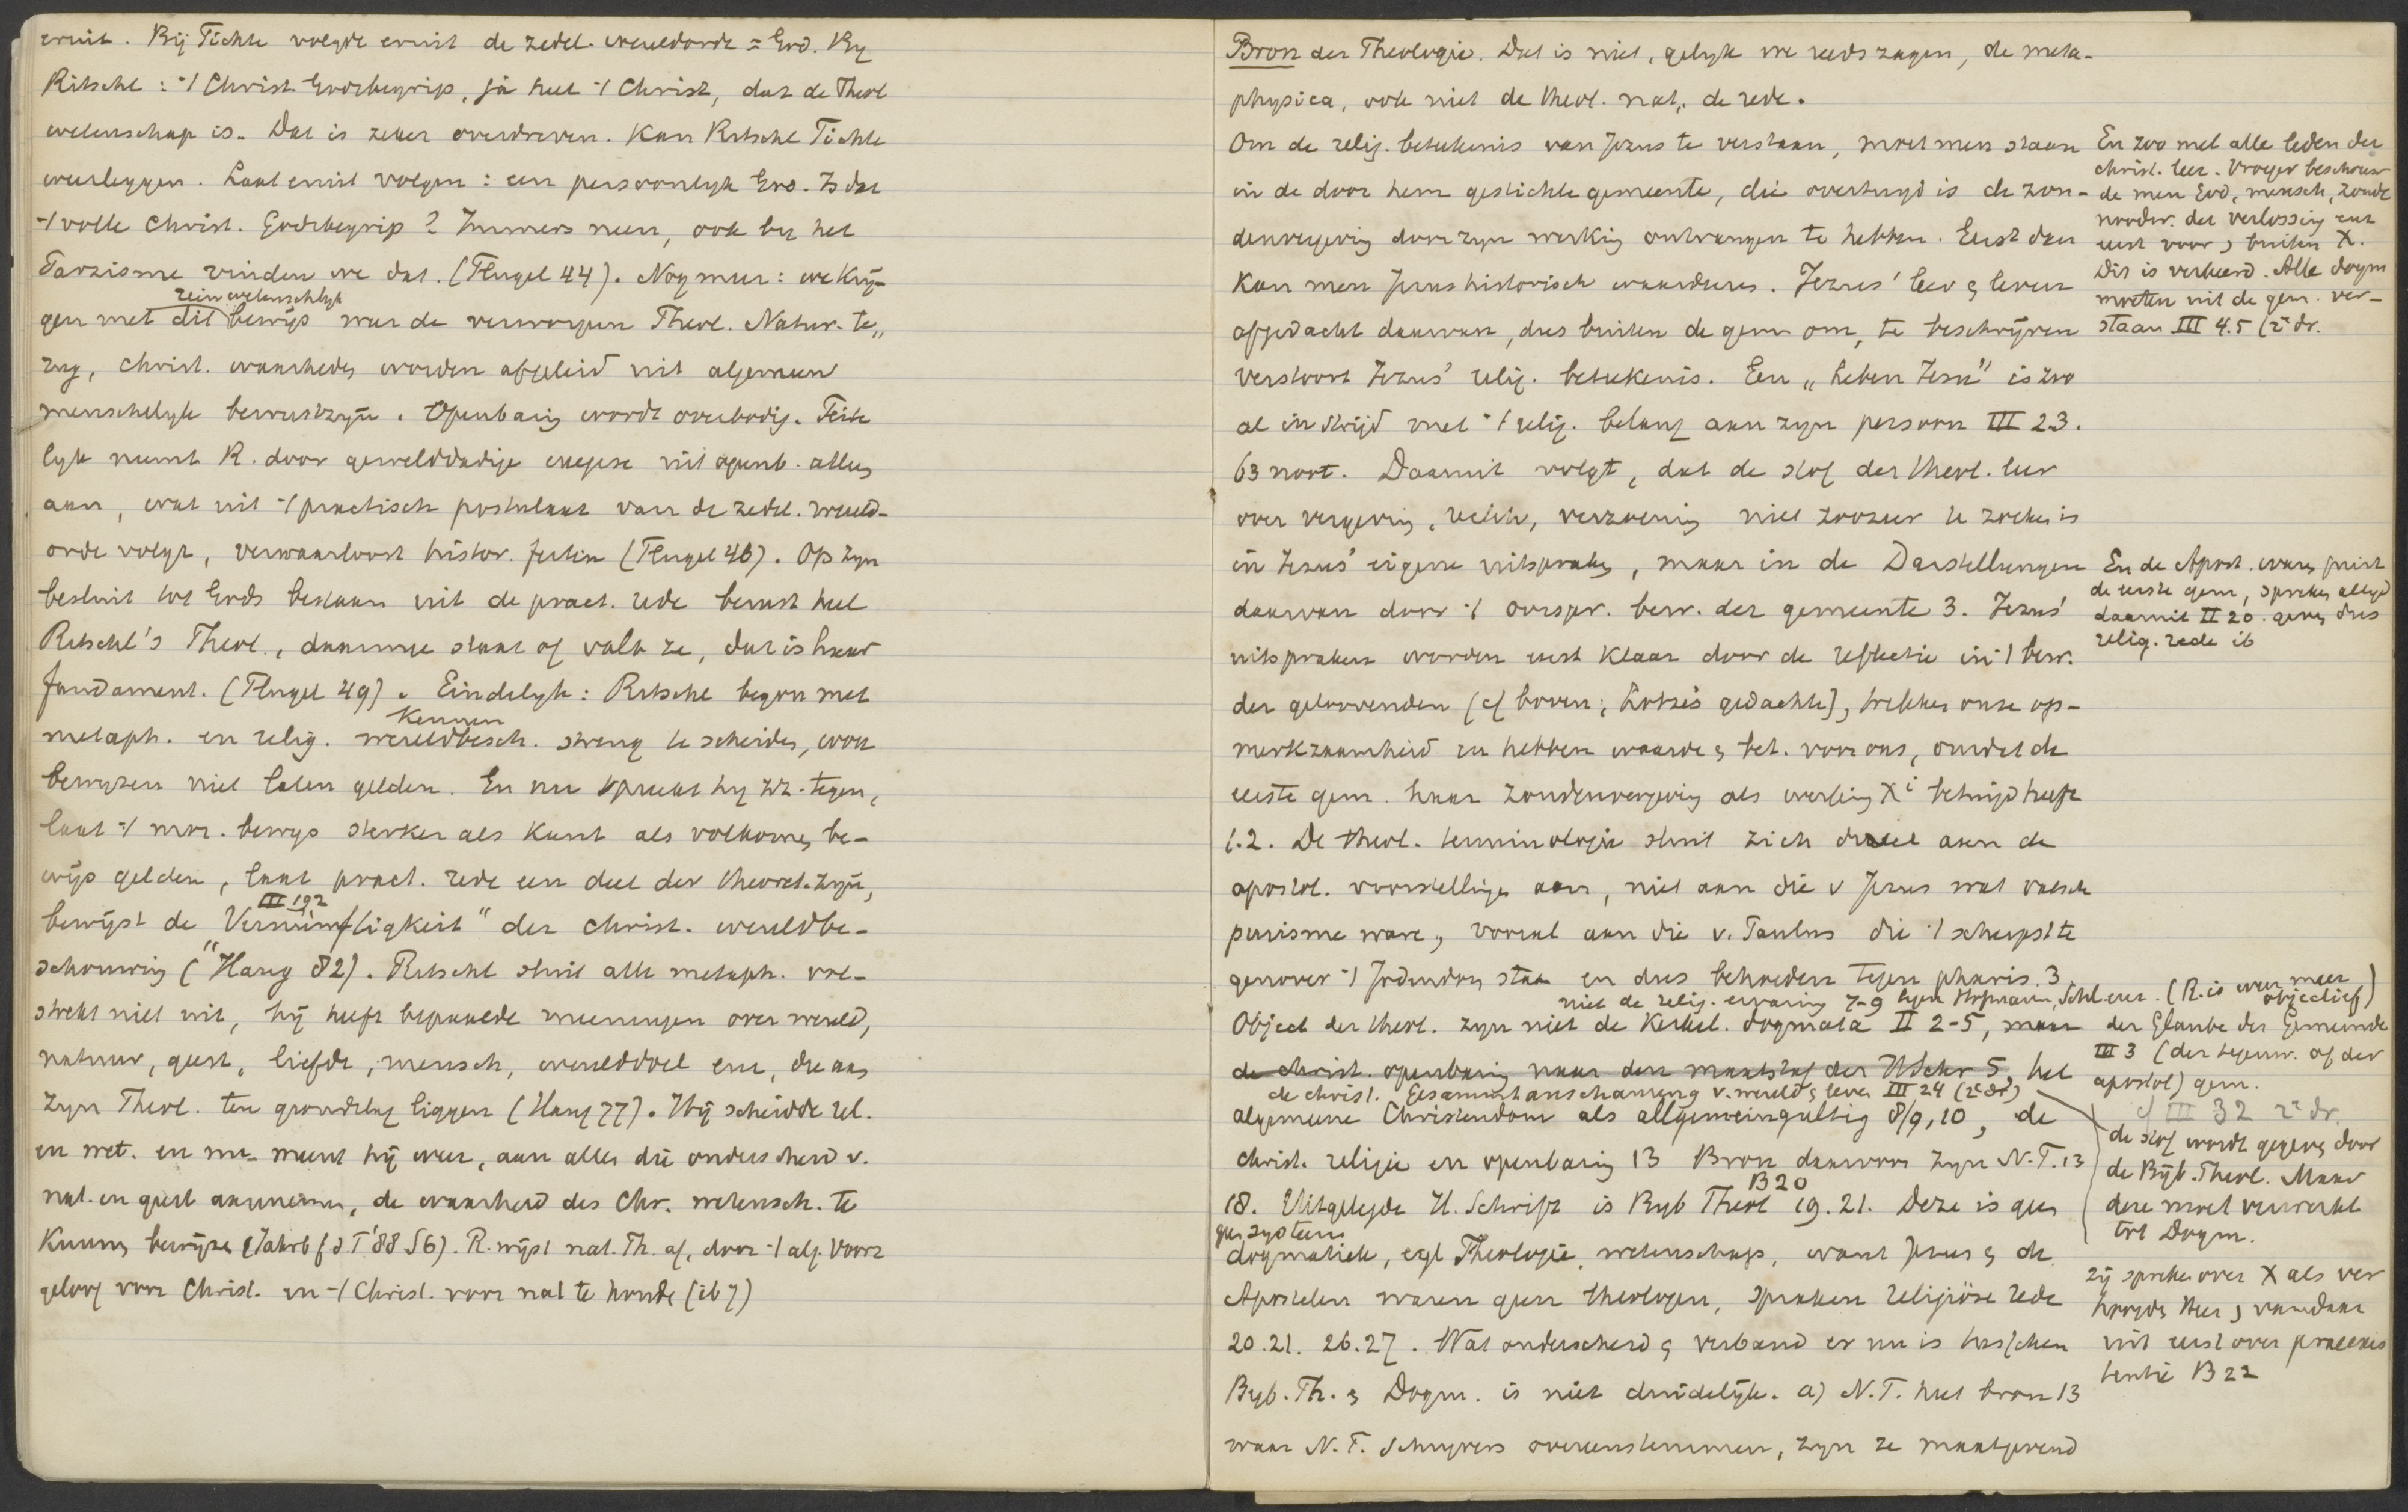 eruit. Bij Fichte volgde eruit de zedel. wereldorde = God. By
Ritschl: -/ Christ. Godsbegrip, ja heel -/ Christ, dat de Theol
wetenschap is. Dat is zeker overdreven. Kan Ritschl Fichte
weerleggen. Laat eruit volgen: een persoonlyk God. Is dat
-/ volle Christ. Godsbegrip? Immers neen, ook by het
Parzisme vinden we dat. (Flugel 44). Nog meer: we krij-
rein wetenschlyk
gen met dit bewijs weer de verworpen Theol. Natur. te„
rug, christ. waarheden worden afgeleid uit algemeen
menschelyk bewustzyn. Openbaring wordt overbodig. Feite
lyk neemt R. door gewelddadige exegese uit openb. alles
aan, wat uit -/ practisch postulaat van de zedel. wereld-
orde volgt, verwaarloost histor. feiten (Flugel 46). Op zyn
besluit tot Gods bestaan uit de pract. rede berust heel
Ritschl's Theol., daarmee staat of valt ze, dat is haar
fundament. (Flugel 49). Eindelyk: Ritschl begon met
kennen
metaph. en relig. wereldbesch. streng te scheiden, wou
bewyzen niet laten gelden. En nu spreekt hy zz. tegen,
laat -/ mor. bewys sterker als Kant als volkomen be-
wijs gelden, laat pract. rede een deel der theoret. zyn,
III 192
bewijst de Vernünftigkeit" der christ. wereldbe-
schouwing ("Haug 82). Ritschl sluit alle metaph. vol-
strekt niet uit, hij heeft bepaalde meeningen over wereld,
natuur, geest, liefde, mensch, werelddoel enz, die aan
zyn Theol. ten grondslag liggen (Haug 77). Hij scheidde rel.
en wet. en nu meent hij weer, aan alles die onderscheid v.
nat. en geest aannemen, de waarheid des Chr. wetensch. te
kunnen bewijzen (Jahrb f d T '88 S 6). R. wijst nat. Th. af, door -/ alg. voor
geloof voor Christ. en -/ Christ. voor nat te houden (ib 7)
Bron der Theologie. Dat is niet, gelyk we reeds zagen, de meta-
physica, ook niet de theol. nat., de rede.
Om de relig. beteekenis van Jezus te verstaan, moet men staan
in de door hem gestichte gemeente, die overtuigd is de zon-
denvergeving door zyn werking ontvangen te hebben. Eerst dan
kan men Jezus historisch waardeeren. Jezus' leer & leven
afgedacht daarvan, dus buiten de gem om, te beschrijven
verstoort Jezus' relig. beteekenis. Een „Leben Jesu" is zoo
al in strijd met -/ relig. belang aan zyn persoon III 2.3.
63 noot. Daaruit volgt, dat de stof der theol. leer
over vergeving, rechtv, verzoening niet zoozeer te zoeken is
in Jezus' eigene uitspraken, maar in de Darstellungen
daarvan door -/ oorspr. bew. der gemeente 3. Jezus'
uitspraken worden eerst klaar door de reflectie in -/ bew.
der geloovenden (cf boven; Lotze's gedachte), trekken onze op-
merkzaamheid en hebben waarde & bet. voor ons, omdat de
eerste gem. haar zondenvergeving als werking Xi betuigd heeft
1.2. De theol. terminologie sluit zich direct aan de
apostol. voorstellingen aan, niet aan die v Jezus wat valsch
purisme ware, vooral aan die v. Paulus die -/ scherpst te
genover -/ Jodendom staan en dus behoeden tegen pharis. 3
niet de relig. ervaring 7-9 tegen Hofmann, Schl enz. (R. is weer meer objectief)
Object der theol. zyn niet de kerkel. dogmata II 2-5, maar der Glaube der Gemeinde
de christ. openbaring naar den maatstaf der H Schr 5, het
de christ. Gesammtanschauung v. wereld & leven III 24 (2e dr)
algemeene Christendom als allgemeingultig 8/9, 10, de
christ. religie en openbaring 13 Bron daarvan zyn N.T. 13
B 20
18. Uitgelegde H. Schrift is Byb Theol 19. 21. Deze is geen
geen systeem
dogmatiek, egl Theologie, wetenschap, want Jezus & de
Apostelen waren geen theologen, spraken religiöse rede
20. 21. 26. 27. Wat onderscheid & verband er nu is tusschen
Byb. Th. & Dogm. is niet duidelijk. a) N.T. heet bron 13
waar N. T. schryvers overeenstemmen, zyn ze maatgevend
En zoo met alle leden der
christ. leer. Vroeger beschouw
de men God, mensch, zonde
noodw. der verlossing enz
eerst voor & buiten X.
Dit is verkeerd. Alle dogm
moeten uit de gem. ver-
staan III 4.5 (2e dr.
En de Apost. waren juist
de eerste gem, spreken altijd
daaruit II 20. geven dus
relig. rede ib
III 3 (der tegenw. of der
apostol) gem.
cf III 32 2e dr.
de stof wordt gegeven door
de Bijb. Theol. Maar
deze moet verwerkt
tot Dogm.
zij spreken over X als ver
hoogden Heer & vandaar
uit eerst over praeexis
tentie B 22